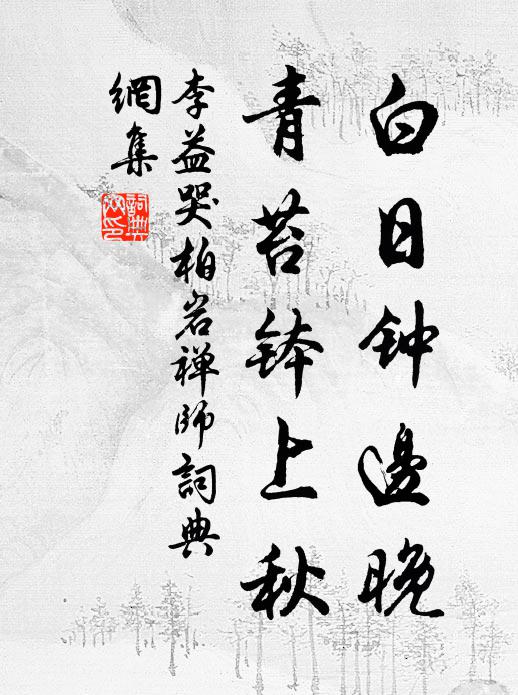 白日钟邊晚
青苔钵上秋
李益哭柏岩禅師詞典
網集
詞典
网印